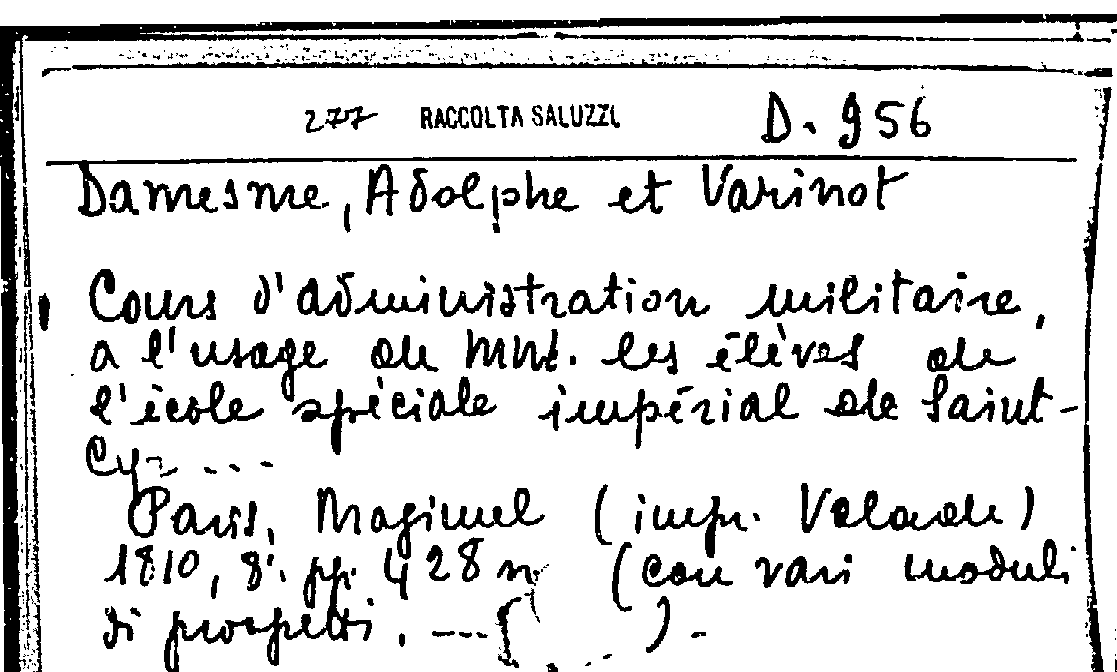 277 RACCOLTA SALUZZI D. 956
Damesme, Adolphe et Varinot
Cours d'administration militaire,
a l'usage de MM. les élèves de
l'école spéciale impérial de Saint-
Cyr ...
Paris, Magimel (impr. Velade)
1810, 8°. pp. 428 (con vari moduli
di prospetti. --- ( ) -